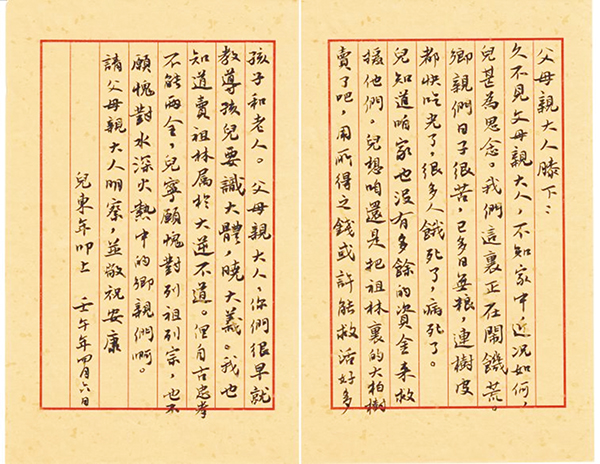 父母親大人膝下：
久不見父母親大人，不知家中近況如何，
兒甚為思念。我們這裏正在鬧饑荒。
鄉親們日子很苦，已多日無粮，連樹皮
都快吃光了，很多人餓死了，病死了。
兒知道咱家也沒有多餘的資金来救
援他們。兒想咱還是把祖林裏的大柏樹
賣了吧，用所得之錢或許能救活好多
孩子和老人。父母親大人，你們很早就
教導孩兒要識大體，曉大義。我也
知道賣祖林属於大逆不道。但自古忠孝
不能两全，兒寧願愧對列祖列宗，也不
願愧對水深火熱中的鄉親們啊。
請父母親大人明察，並敬祝安康
兒東年叩上 壬午年四月六日